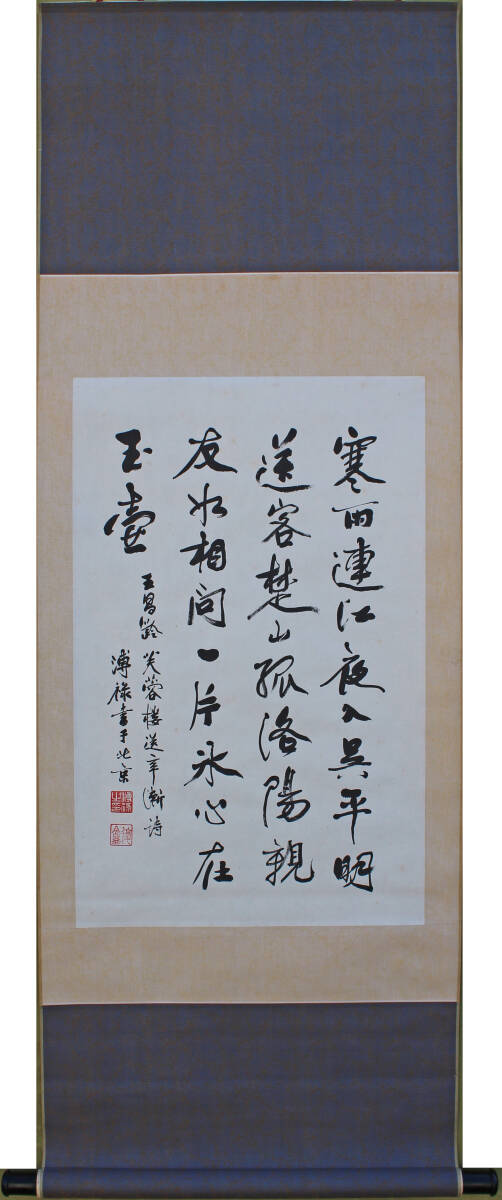 寒雨連江夜入吳平明
送客楚山孤洛陽親
友如相问一片冰心在
玉壺
王昌齡芙蓉樓送辛漸詩
溥禄書于北京